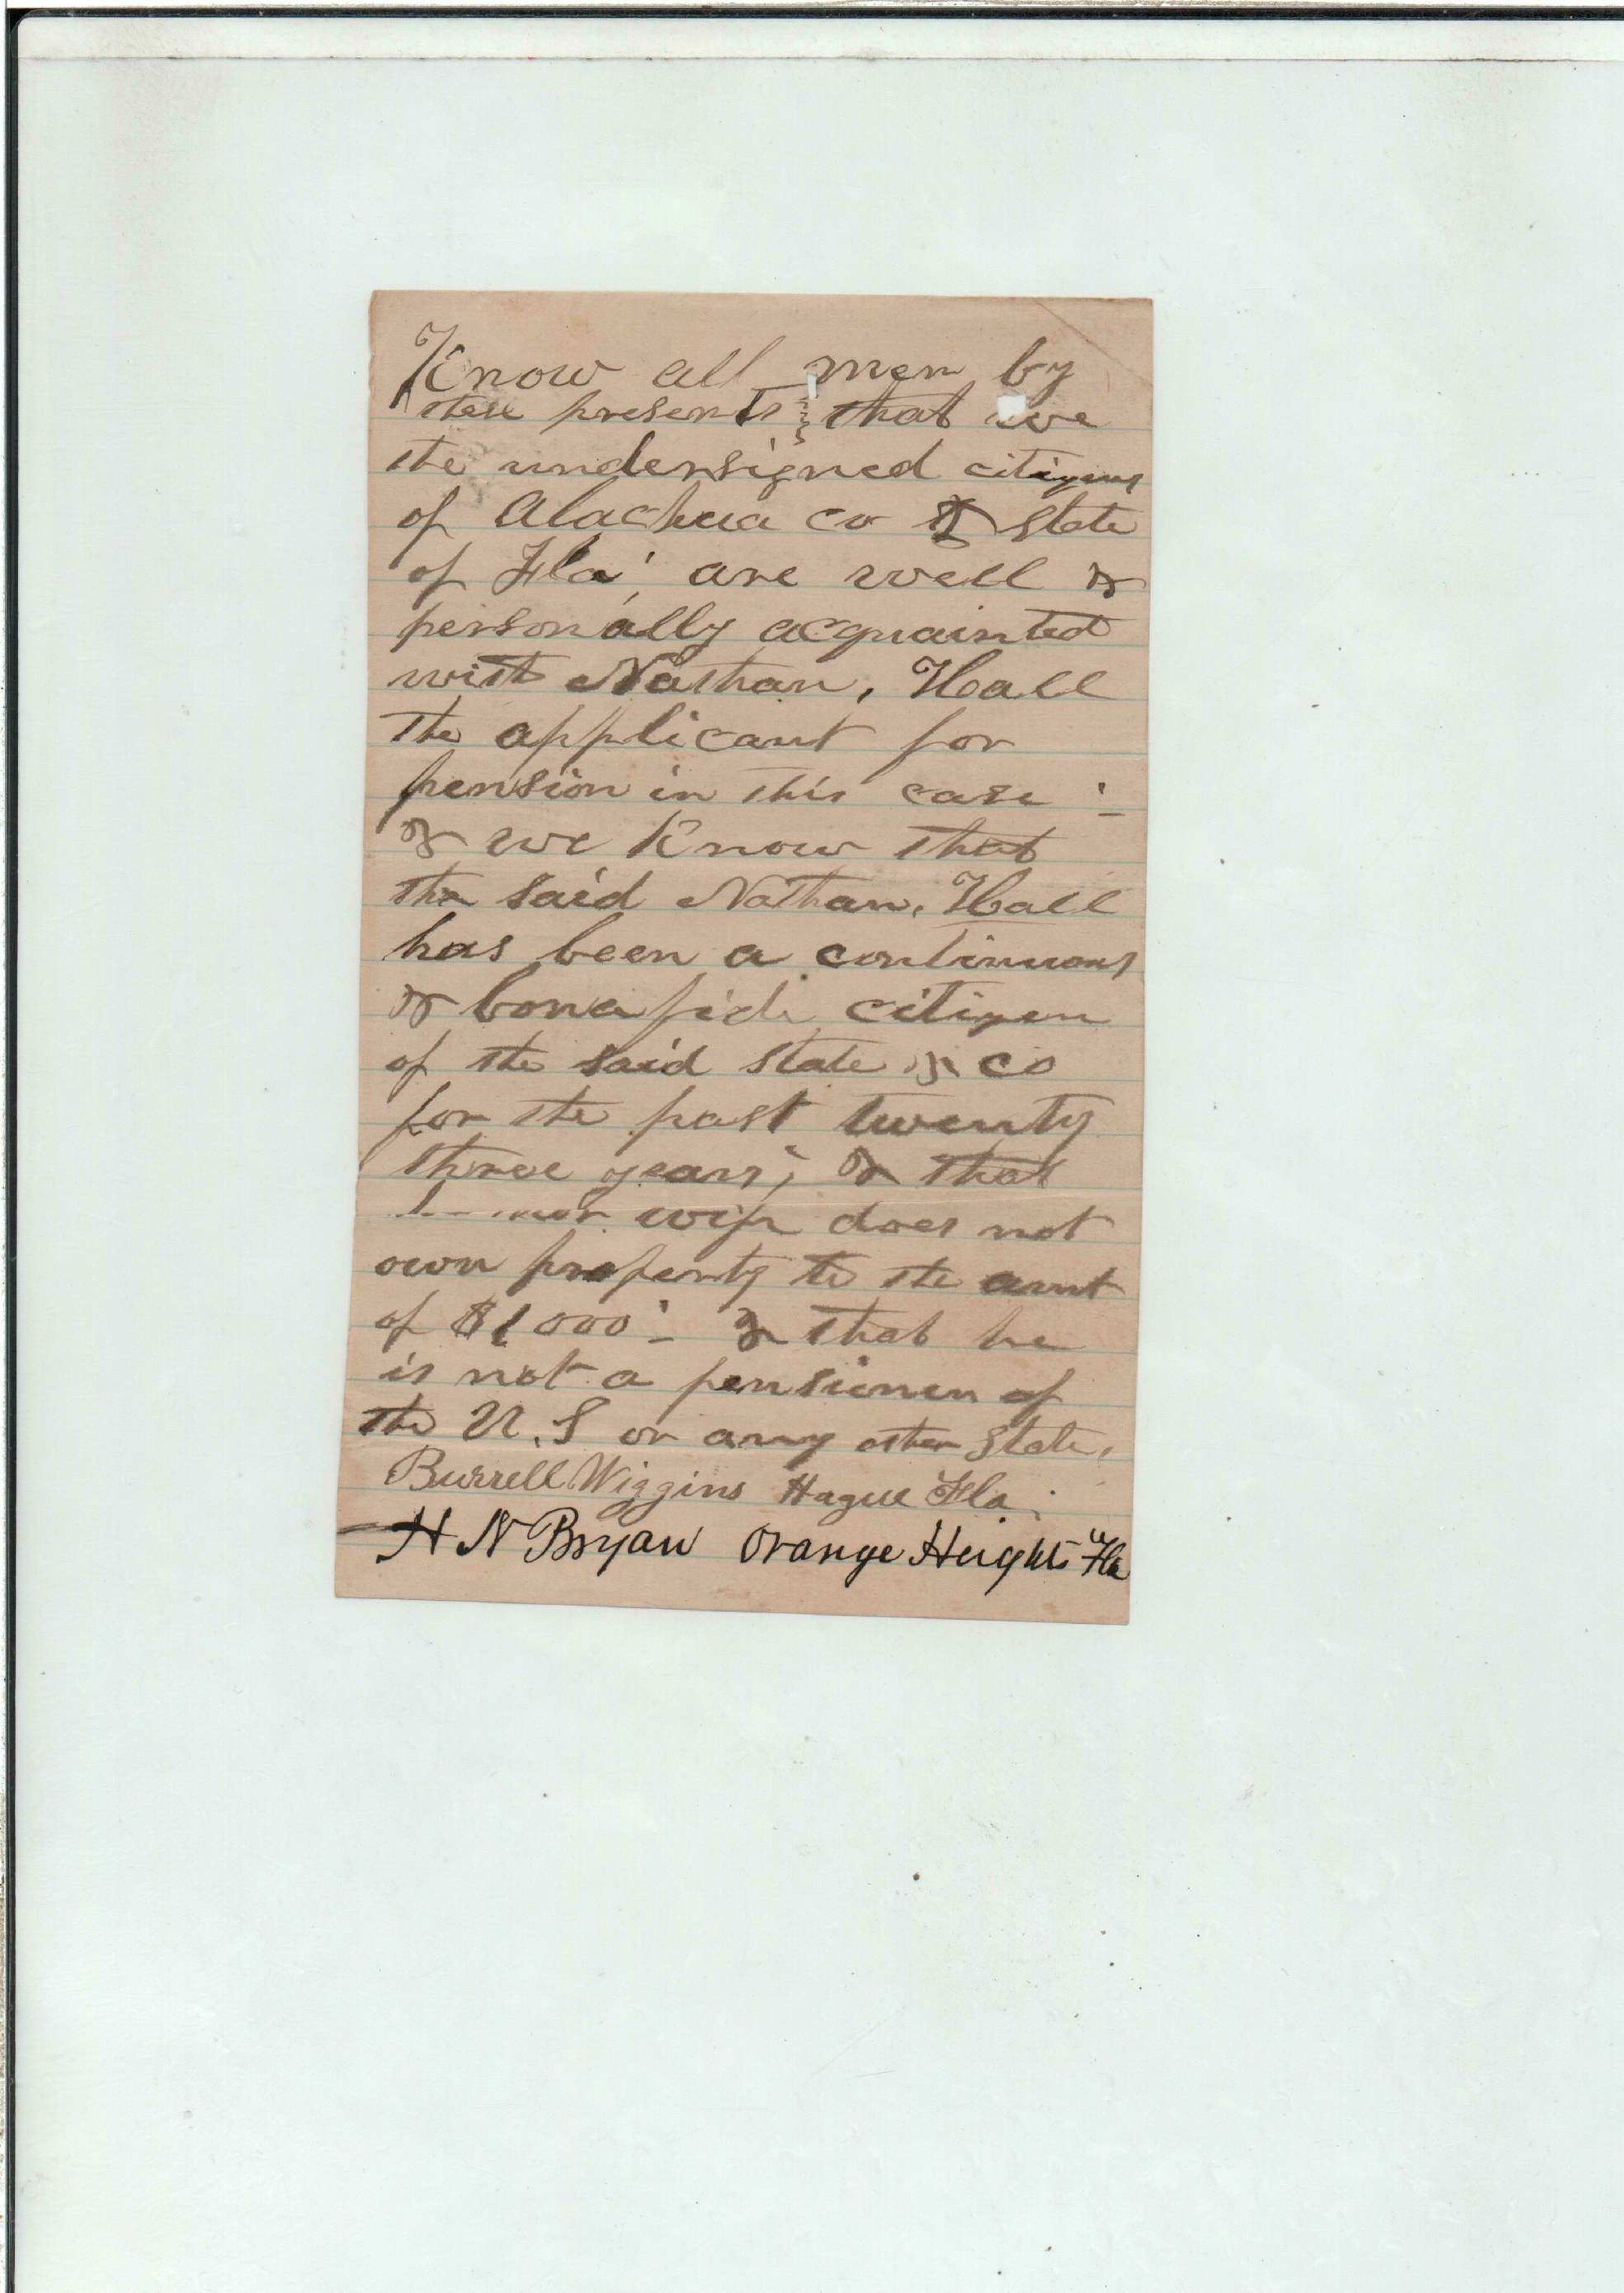 Know all men by
these presents that we
the undersigned citizens
of Alachua co & State
of Fla, are well &
personally acquainted
with Nathan, Hall
the applicant for
pension in this case :-
& we Know that
the said Nathan, Hall
has been a continuous
& bona fide citizen
of the said state & co
for the past twenty
three years; & that
nor wife does not
own property to the amt
of $1000:- & that he
is not a pensioner of
the U.S or any other State.
Burrell Wiggins Hague Fla.
H N Bryan Orange Heights Fla